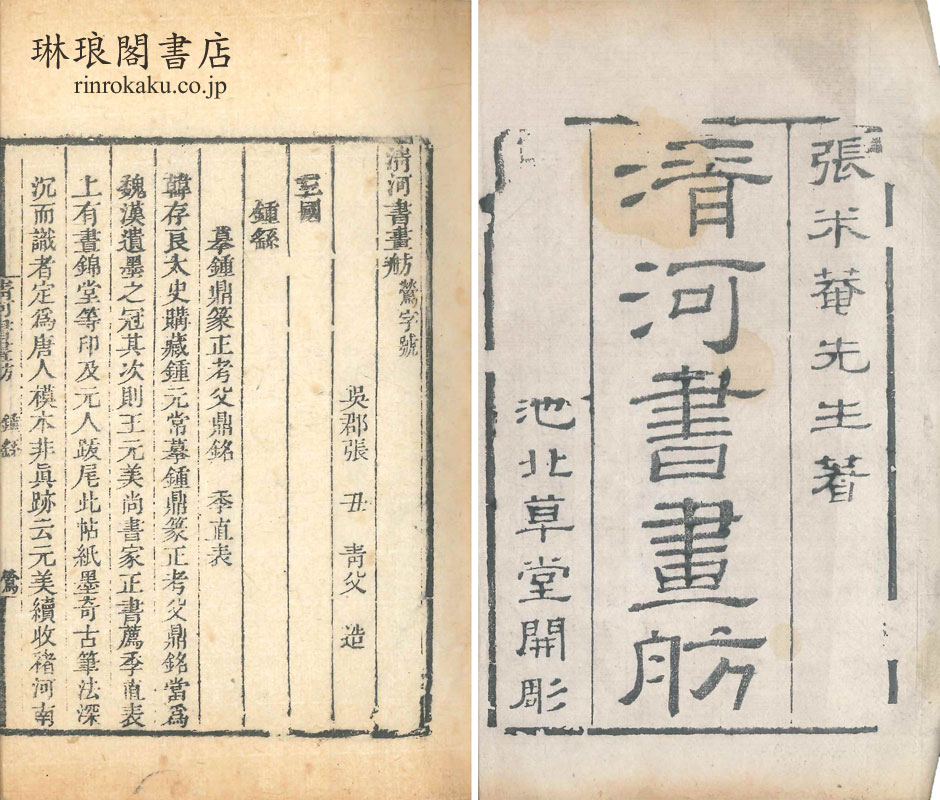 琳琅閣書店
rinrokaku.co.jp
張米菴先生著
清河書畫舫
池北草堂開彫
清河書畫舫 鶯字號
吳郡張 丑 青父 造
三國
鍾繇
摹鍾鼎篆正考父鼎銘 季直表
韓存良太史購藏鍾元常摹鍾鼎篆正考父鼎銘當爲
魏漢遺墨之冠其次則王元美尚書家正書薦季直表
上有晝錦堂等印及元人跋尾此帖紙墨奇古筆法深
沉而識者定爲唐人模本非眞跡云元美續收褚河南
清河書畫舫 鍾繇 鶯